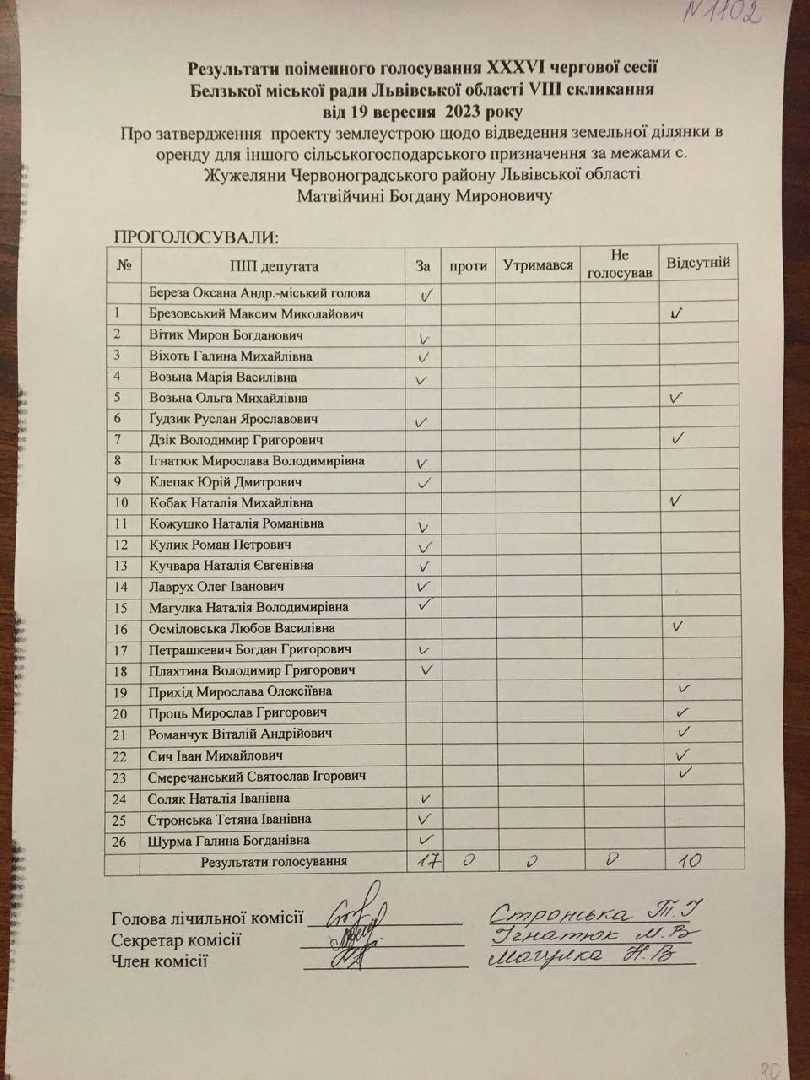 N 1102
Результати поіменного голосування XXXVI чергової сесії
Белзької міської ради Львівської області VIII скликання
від 19 вересня 2023 року
Про затвердження проекту землеустрою щодо відведення земельної ділянки в
оренду для іншого сільськогосподарського призначення за межами с.
Жужеляни Червоноградського району Львівської області
Матвійчині Богдану Мироновичу
ПРОГОЛОСУВАЛИ:
№ ПІП депутата За проти Утримався Не голосував Відсутній
Береза Оксана Андр.-міський голова ✓
1 Брезовський Максим Миколайович ✓
2 Вітик Мирон Богданович ✓
3 Віхоть Галина Михайлівна ✓
4 Возьна Марія Василівна ✓
5 Возьна Ольга Михайлівна ✓
6 Ґудзик Руслан Ярославович ✓
7 Дзік Володимир Григорович ✓
8 Ігнатюк Мирослава Володимирівна ✓
9 Клепак Юрій Дмитрович ✓
10 Кобак Наталія Михайлівна ✓
11 Кожушко Наталія Романівна ✓
12 Кулик Роман Петрович ✓
13 Кучвара Наталія Євгенівна ✓
14 Лаврух Олег Іванович ✓
15 Магулка Наталія Володимирівна ✓
16 Осміловська Любов Василівна ✓
17 Петрашкевич Богдан Григорович ✓
18 Плахтина Володимир Григорович ✓
19 Прихід Мирослава Олексіївна ✓
20 Проць Мирослав Григорович ✓
21 Романчук Віталій Андрійович ✓
22 Сич Іван Михайлович ✓
23 Смеречанський Святослав Ігорович ✓
24 Соляк Наталія Іванівна ✓
25 Стронська Тетяна Іванівна ✓
26 Шурма Галина Богданівна ✓
Результати голосування 17 0 0 0 10
Голова лічильної комісії Стронська Т.І
Секретар комісії Ігнатюк М.В
Член комісії Магулка Н.В